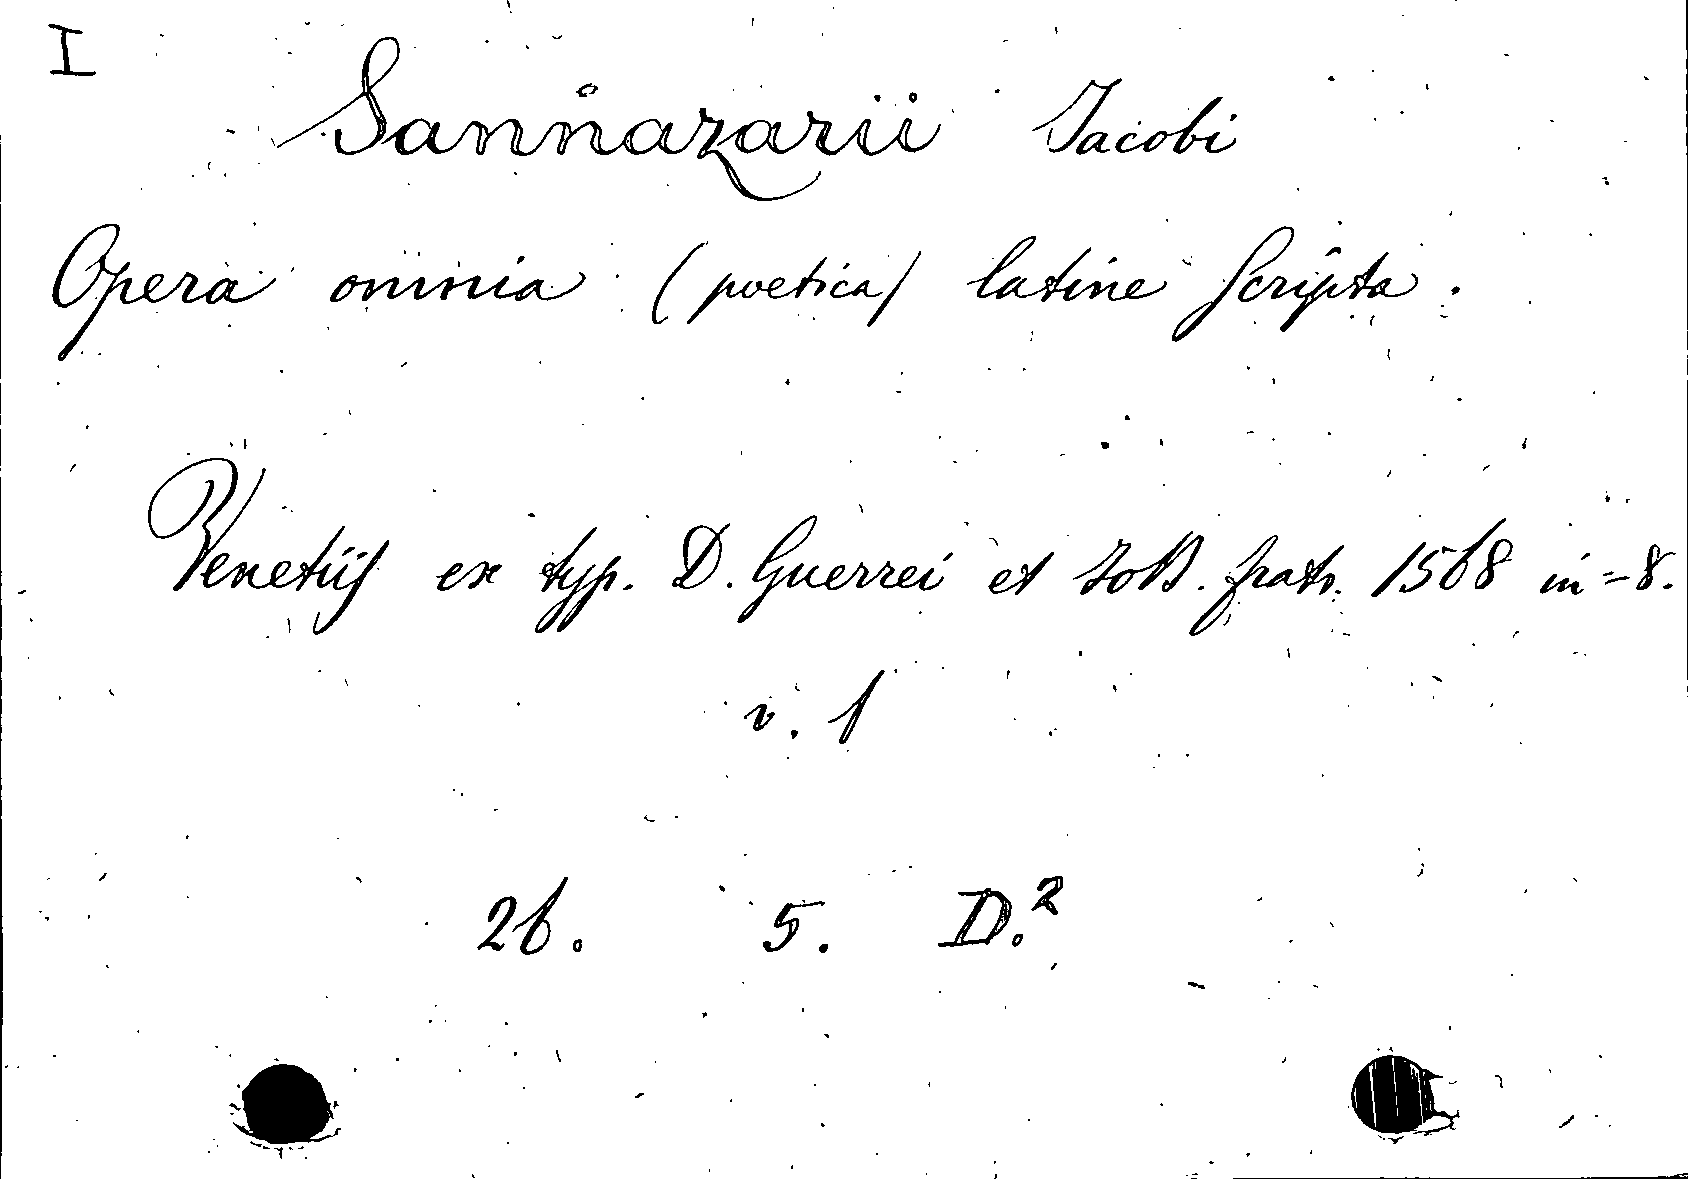 I
Sannazarii Jacobi
Opera omnia (poetica) latine scripta.
Venetiis ex typ. D. Guerrei et JoB. fratr. 1568 in=8.
v. 1
26. 5. D.²